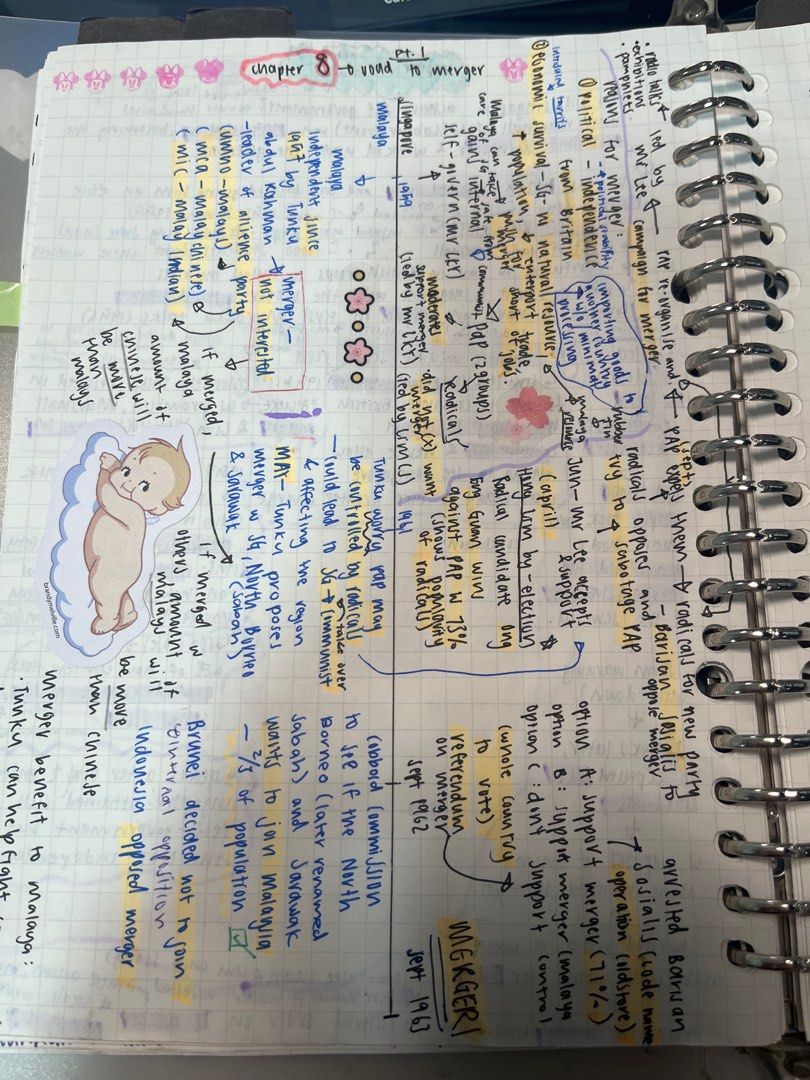 pt. 1
chapter 8 → road to merger
· radio talks
· exhibitions
· pamphlets
led by
Mr Lee
campaign for merger
PAP re-organise and
(sept)
PAP expels them → radicals for new party
- Barisan Sosialis to
oppose merger
radicals opposes and
try to → sabotage PAP
arrested Barisan
Sosialis (code name
operation coldstore)
reasons for merger:
① political - independence
→ political stability
from Britain
introduced tariffs
② economic survival - SG no natural resource,
↑ population, ↓ entrepot trade,
↳ push for merger
short of jobs
importing goods to
another country
w/o minimal
processing
rubber
tin
malaya
resource
June - Mr Lee accepts
& support
option A: support merger (71%)
option B: support merger (malaya
option C: dont support
control
(april)
Hong Lim by-election
Radical candidate Ong
Eng Guan wins
against PAP w 73%
(shows popularity
of radicals)
(whole country
to vote)
referendum
on merger
sept 1962
MERGER!
sept 1963
Malaya can take
care of SG
safe from
communist
gain internal
self-govern (Mr Lee)
PAP (2 groups)
moderates
support merger
(led by Mr Lee)
radicals
did not (x) want
merger
(led by LCS)
singapore
1959
1961
malaya
malaya
independent since
1957 by Tunku
abdul Rahman
-leader of alliance party
(UMNO - malays)
(MCA - malay chinese)
(MIC - malay indian)
merger -
not interested
if merged,
malaya
amount of
chinese will
be more
than
malays
Tunku worry PAP may
be controlled by radicals
- could lead to SG → communist
take over
& affecting the region
MAY - Tunku proposes
merger w SG, North Borneo
& Sarawak
(Sabah)
if merged w
others amount of
malays will
be more
than chinese
cobbold commission
to see if the North
Borneo (later renamed
sabah) and Sarawak
wants to join Malaysia
- 2/3 of population
Brunei decided not to join
internal opposition
Indonesia opposed merger
merger benefit to malaya:
· Tunku can help fight
brandymelville.com